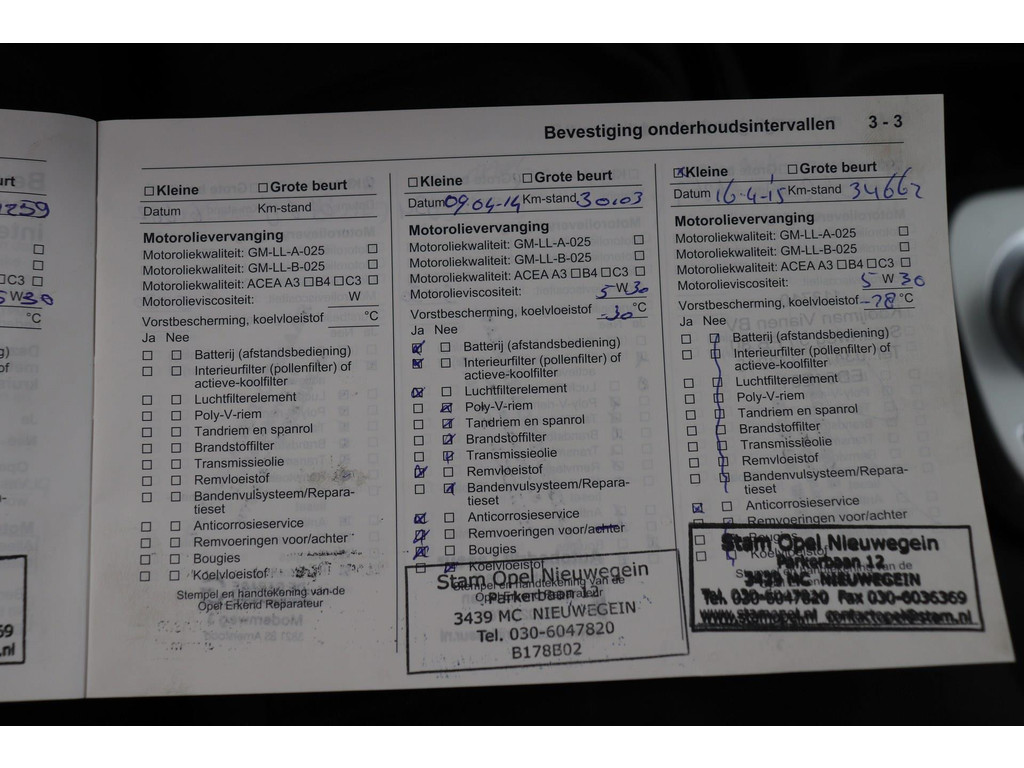 Bevestiging onderhoudsintervallen 3 - 3
urt
1259
C3
5 W30
°C
Kleine Grote beurt
Datum Km-stand
Motorolievervanging
Motoroliekwaliteit: GM-LL-A-025
Motoroliekwaliteit: GM-LL-B-025
Motoroliekwaliteit: ACEA A3 B4 C3
Motorolieviscositeit: W
Vorstbescherming, koelvloeistof °C
Ja Nee
Batterij (afstandsbediening)
Interieurfilter (pollenfilter) of
actieve-koolfilter
Luchtfilterelement
Poly-V-riem
Tandriem en spanrol
Brandstoffilter
Transmissieolie
Remvloeistof
Bandenvulsysteem/Repara-
tieset
Anticorrosieservice
Remvoeringen voor/achter
Bougies
Koelvloeistof
Stempel en handtekening van de
Opel Erkend Reparateur
Kleine Grote beurt
Datum 09-04-14 Km-stand 30.03
Motorolievervanging
Motoroliekwaliteit: GM-LL-A-025
Motoroliekwaliteit: GM-LL-B-025
Motoroliekwaliteit: ACEA A3 B4 C3
Motorolieviscositeit: 5 W 30
Vorstbescherming, koelvloeistof -30 °C
Ja Nee
Batterij (afstandsbediening)
Interieurfilter (pollenfilter) of
actieve-koolfilter
Luchtfilterelement
Poly-V-riem
Tandriem en spanrol
Brandstoffilter
Transmissieolie
Remvloeistof
Bandenvulsysteem/Repara-
tieset
Anticorrosieservice
Remvoeringen voor/achter
Bougies
Koelvloeistof
Stempel en handtekening van de
Opel Erkend Reparateur
Stam Opel Nieuwegein
Parkerbaan 12
3439 MC NIEUWEGEIN
Tel. 030-6047820
B178B02
Kleine Grote beurt
Datum 16-4-15 Km-stand 34662
Motorolievervanging
Motoroliekwaliteit: GM-LL-A-025
Motoroliekwaliteit: GM-LL-B-025
Motoroliekwaliteit: ACEA A3 B4 C3
Motorolieviscositeit: 5 W 30
Vorstbescherming, koelvloeistof -28 °C
Ja Nee
Batterij (afstandsbediening)
Interieurfilter (pollenfilter) of
actieve-koolfilter
Luchtfilterelement
Poly-V-riem
Tandriem en spanrol
Brandstoffilter
Transmissieolie
Remvloeistof
Bandenvulsysteem/Repara-
tieset
Anticorrosieservice
Remvoeringen voor/achter
Bougies
Koelvloeistof
Stam Opel Nieuwegein
Parkerbaan 12
3439 MC NIEUWEGEIN
Tel. 030-6047820 Fax 030-6036369
www.stamopel.nl contactopel@stam.nl